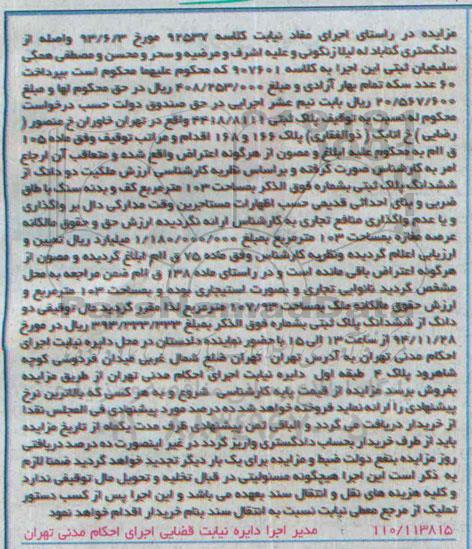 مزایده در راستای اجرای مفاد نیابت کلاسه ۹۲۵۳۷ مورخ ۹۳/۶/۳ واصله از
دادگستری گناباد له لیلا زنگوئی و علیه اشرف و مرضیه و سحر و محسن و مصطفی همگی
سلیمیان ثبتی این اجرا به کلاسه ۹۰۷۶۰۱ که محکوم علیهما محکوم است بپرداخت
۶۰ عدد سکه تمام بهار آزادی و مبلغ ۴۰۸/۲۵۳/۰۰۰ ریال در حق محکوم لها و مبلغ
۲۰/۵۶۷/۶۰۰ ریال بابت نیم عشر اجرایی در حق صندوق دولت حسب درخواست
محکوم له نسبت به توقیف پلاک ثبتی ۴۴۱۸/۸۱۶۱ واقع در تهران خاوران خ منصور (
رضایی) خ اتابک (ذوالفقاری) پلاک ۱۶۶ و ۱۶۸ اقدام و مراتب توقیف وفق ماده ۱۰۵
ق اام به محکوم علیه ابلاغ و مصون از هرگونه اعتراض واقع شده و متعاقب آن ارجاع
امر به کارشناس صورت گرفته و بر اساس نظریه کارشناسی ارزش ملکیت دو دانگ از
ششدانگ پلاک ثبتی بشماره فوق الذکر بمساحت ۱۰۳ مترمربع کف و بدنه سنگ با طاق
ضربی و بنای احداثی قدیمی حسب اظهارات مستاجرین وقت مدارکی دال بر واگذاری
و یا عدم واگذاری منافع تجاری به کارشناس ارائه نگردیده ارزش حق و حقوق مالکانه
عرصه مغازه بمساحت ۱۰۳ مترمربع بمبلغ ۱/۱۸۰/۰۰۰/۰۰۰ میلیارد ریال تعیین و
ارزیابی اعلام گردیده ونظریه کارشناس وفق ماده ۷۵ ق اام ابلاغ گردیده و مصون از
هرگونه اعتراض باقی مانده است و در راستای ماده ۱۳۸ ق اام ضمن مراجعه به محل
مشخص گردید نانوایی تجاری و بصورت استیجاری بوده و بمساحت ۱۰۳ مترمربع و
ارزش حقوق مالکانه ملک بمساحت ۱۰۷/۹۳ مترمربع لذا مقرر گردید مال توقیفی دو
دانگ از شش دانگ پلاک ثبتی بشماره فوق الذکر بمبلغ ۳۹۳/۳۳۳/۳۳۳ ریال در مورخ
۹۴/۱۱/۲۸ از ساعت ۱۴ الی ۱۵ با حضور نماینده دادستان در محل دایره نیابت اجرای
احکام مدنی تهران به آدرس تهران تهران ضلع شمال غربی میدان فردوسی کوچه
شاهرود پلاک ۴ طبقه اول دایره نیابت اجرای احکام مدنی تهران از طریق مزایده
بفروش برسد مزایده از قیمت پایه کارشناسی شروع و به هر کسی که بالاترین نرخ
پیشنهادی را ارائه نماید فروخته خواهد شد ده درصد مورد پیشنهادی فی المجلس نقدا
از خریدار دریافت می گردد و الباقی ثمن پیشنهادی ظرف مدت یکماه از تاریخ مزایده
باید از طرف خریدار بحساب دادگستری واریز گردد در غیر اینصورت ده درصد دریافتی
روز مزایده بنفع دولت ضبط و مزایده برای یک بار دیگر تجدید خواهد گردید ضمنا لازم
به ذکر است این اجرا هیچگونه مسئولیتی در قبال تخلیه و تحویل مال توقیفی ندارد
و کلیه هزینه های نقل و انتقال سند بعهده می باشد و این اجرا پس از کسب دستور
تملیک از مرجع معطی نیابت نسبت به انتقال سند بنام خریدار اقدام خواهد نمود
۱۱۰/۱۱۳۸۱۵ مدیر اجرا دایره نیابت قضایی اجرای احکام مدنی تهران